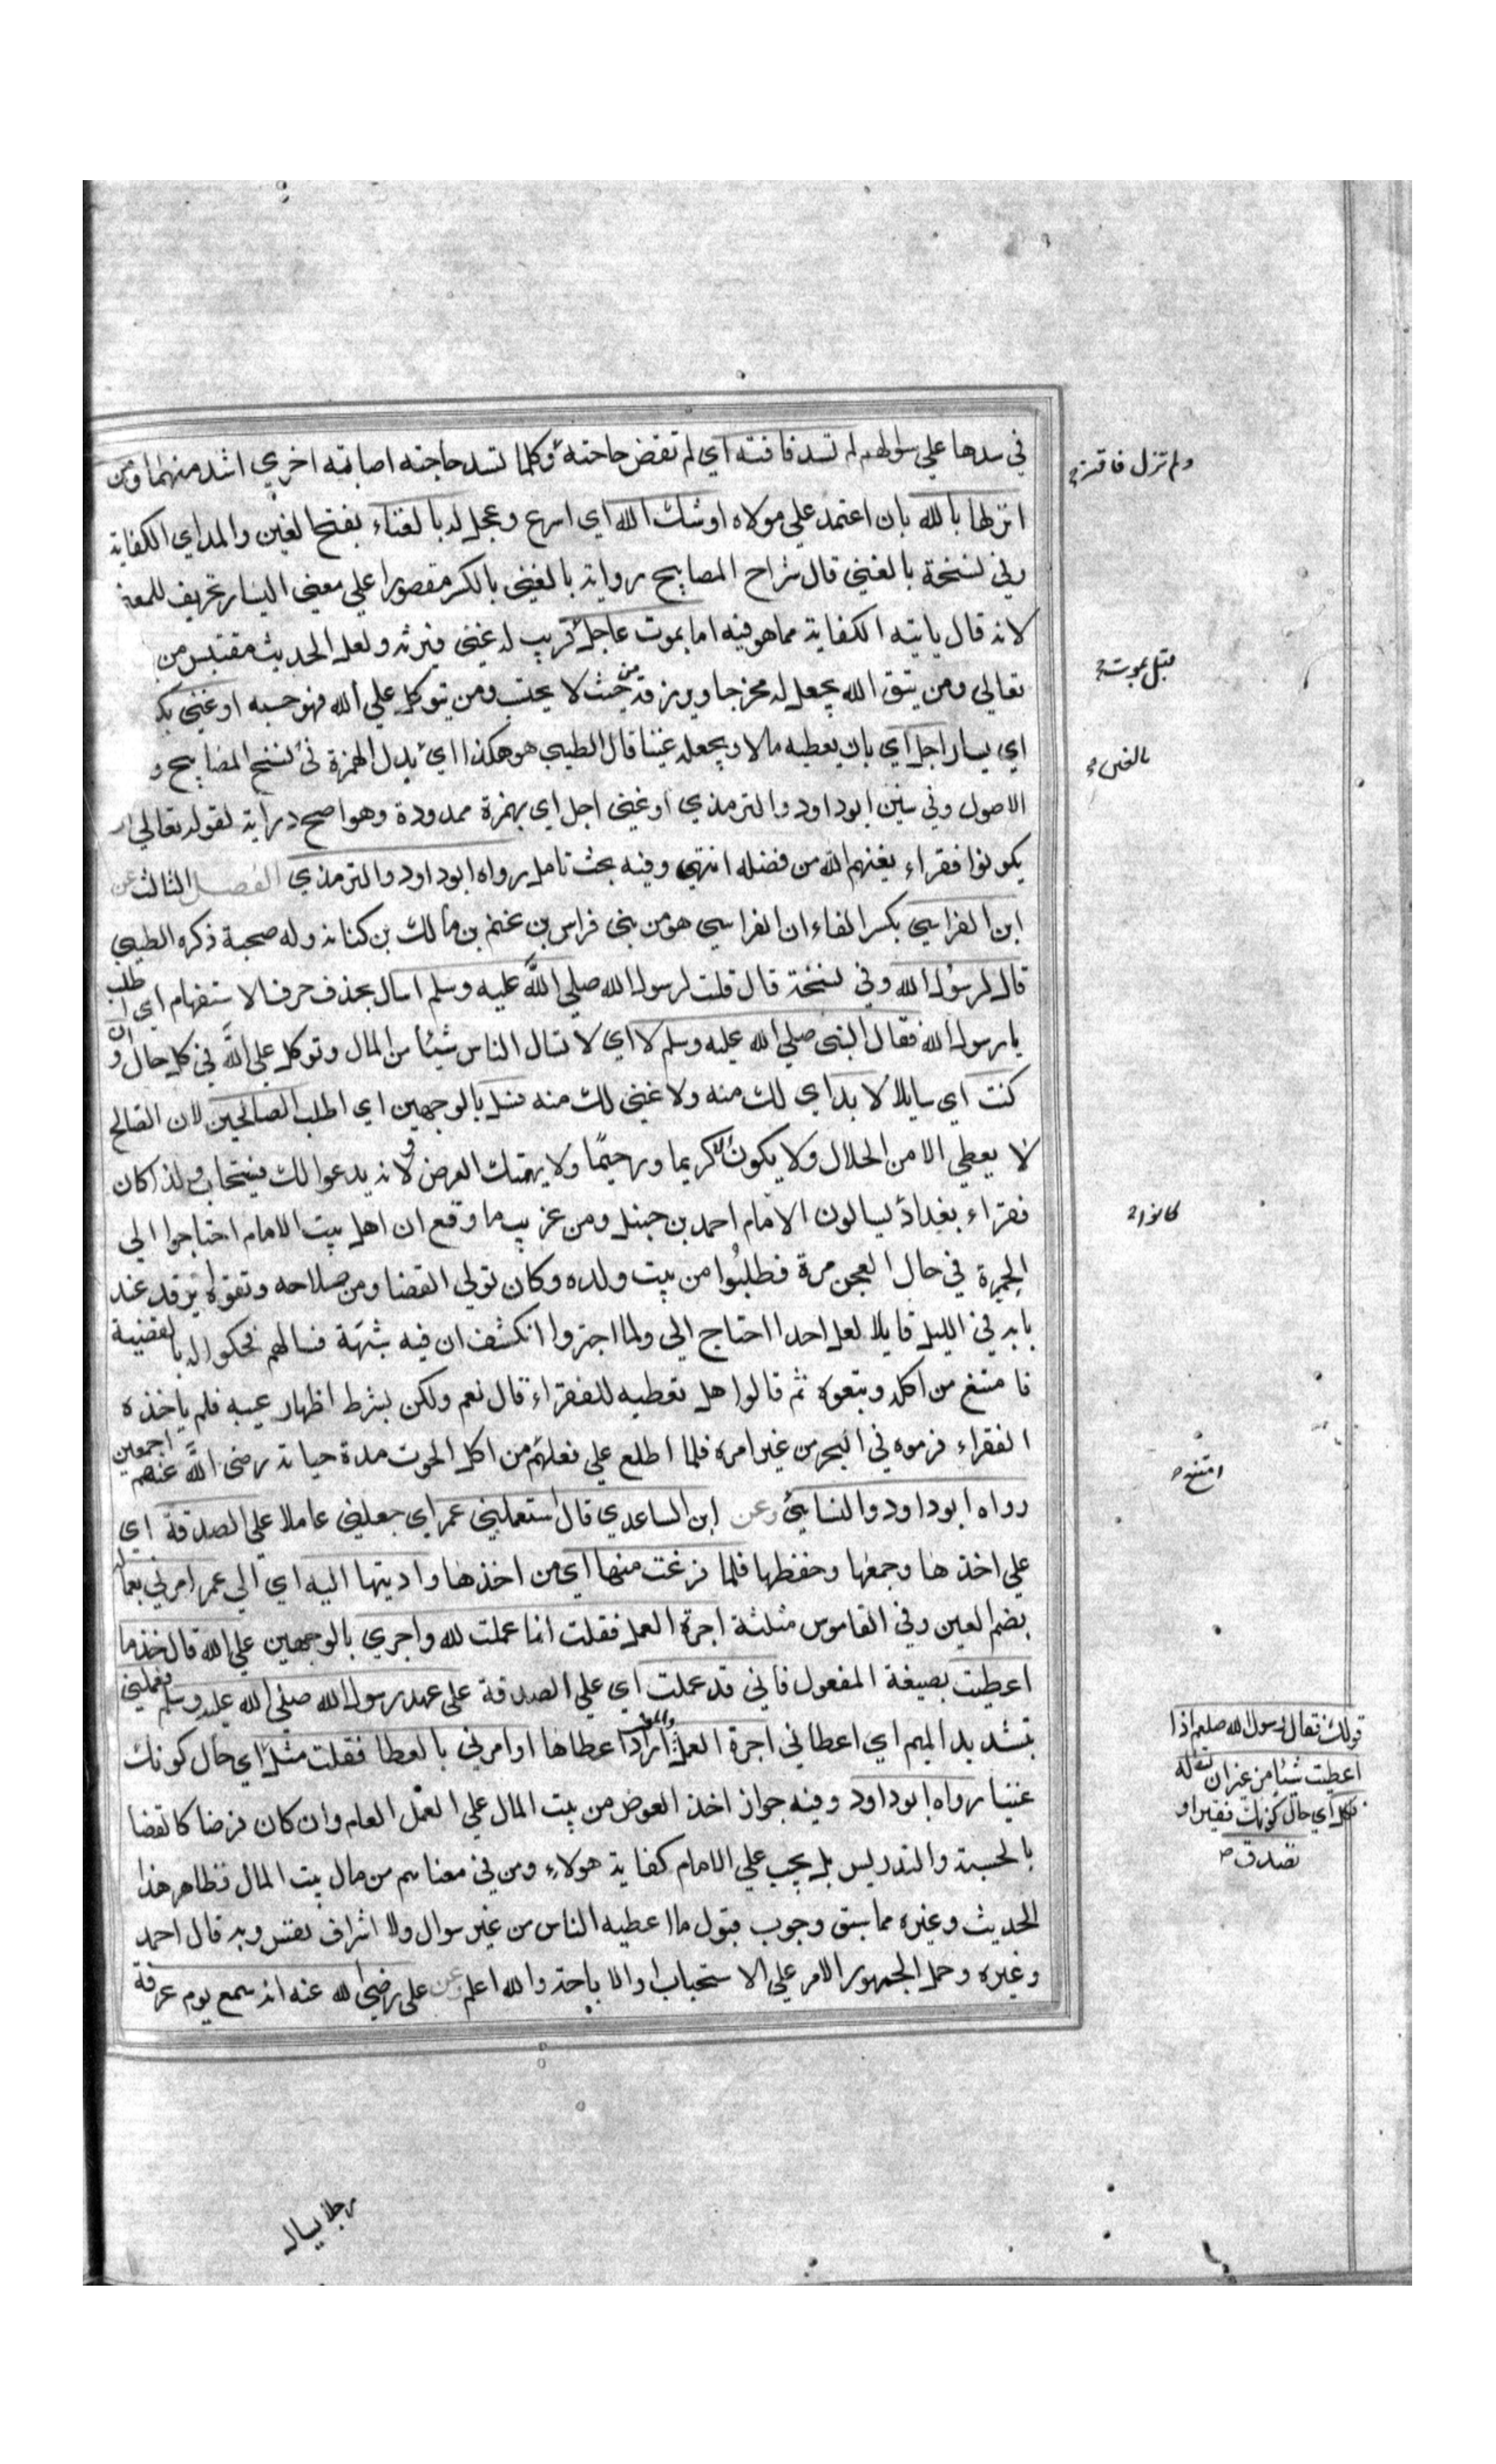 في سدها علي سوالهم لم تسد فاقته اي لم تقض حاجته وكلما تسد حاجته اصابته اخري اشد منهما ومن
انزلها بالله بان اعتمد علي مولاه اوشك الله اي اسرع وعجل له بالغناء بفتح الغين والمد اي الكفاية
وفي نسخة بالغني قال شراح المصابيح رواية بالغني بالكسر مقصورا علي معني اليسار تحريف للمعني
لانه قال ياتيه الكفاية مما هو فيه اما بموت عاجل قريب له غني فيرثه ولعل الحديث مقتبس من
تعالي ومن يتق الله يجعل له مخرجا ويرزقه من حيث لا يحتسب ومن يتوكل علي الله فهو حسبه او غني
اي يسار اجل اي بان يعطيه مالا ويجعله غنيا قال الطيبي هو هكذا اي بدل الهمزة في نسخ المصابيح و
الاصول وفي سنن ابو داود والترمذي او غني اجل اي بهمزة ممدودة وهو اصح دراية لقوله تعالي ان
يكونوا فقراء يغنهم الله من فضله انتهي وفيه بحث تامل رواه ابو داود والترمذي الفصل الثالث عن
ابن الفراسي بكسر الفاء ان الفراسي هو من بني فراس بن غنم بن مالك بن كنانه وله صحبة ذكره الطيبي
قال لرسول الله وفي نسخة قال قلت لرسول الله صلي الله عليه وسلم اسال بحذف حرف الاستفهام اي اطلب
يا رسول الله فقال النبي صلي الله عليه وسلم لا اي لا تسال الناس شيئا من المال وتوكل علي الله في كل حال وان
كنت اي سايلا لا بد اي لك منه ولا غني لك منه فسل بالوجهين اي اطلب الصالحين لان الصالح
لا يعطي الا من الحلال ولا يكون الا كريما ورحيما ولا يهتك العرض ولانه يدعوا لك فيستجاب ولذا كان
فقراء بغداد يسالون الامام احمد بن حنبل ومن غريب ما وقع ان اهل بيت الامام احتاجوا الي
الخميرة في حال العجن مرة فطلبوا من بيت ولده وكان تولي القضا ومن صلاحه وتقواه يرقد عند
بابه في الليل قايلا لعل احدا احتاج الي ولما اجتروا انكشف ان فيه شبهة فسالهم فحكوا له بالقضية
فامتنع من اكله وتبعوه ثم قالوا هل نعطيه للفقراء قال نعم ولكن بشرط اظهار عيبه فلم ياخذه
الفقراء فرموه في البحر من غير امره فلما اطلع علي فعلهم من اكل الحوت مدة حياته رضي الله عنهم اجمعين
رواه ابو داود والنسايي وعن ابن الساعدي قال استعملني عمر اي جعلني عاملا علي الصدقة اي
علي اخذها وجمعها وحفظها فلما فرغت منها اي من اخذها واديتها اليه اي الي عمر امر لي بعمالة
بضم العين وفي القاموس مثلثة اجرة العمل فقلت انما عملت لله واجري بالوجهين علي الله قال خذ ما
اعطيت بصيغة المفعول فاني قد عملت اي علي الصدقة علي عهد رسول الله صلي الله عليه وسلم فعملني
بتشديد الميم اي اعطاني اجرة العمل اراد اعطاها او امر لي بالعطا فقلت مثل اي حال كونك
غنيا رواه ابو داود وفيه جواز اخذ العوض من بيت المال علي العمل العام وان كان فرضا كالقضا
بالحسبة والتدريس بل يجب علي الامام كفاية هولاء ومن في معناهم من مال بيت المال فظاهر هذا
الحديث وغيره مما سبق وجوب قبول ما اعطيه الناس من غير سوال ولا اشراف نفس وبه قال احمد
وغيره وحمل الجمهور الامر علي الاستحباب او الاباحة والله اعلم وعن علي رضي الله عنه انه سمع يوم عرفة
رجلا يسال
ولم تزل فاقته
قبل بموت
بالغين
كانوا
امتنع
قولك فقال لي رسول الله صلعم اذا
اعطيت شيئا من غير ان تساله
فكل اي حال كونك فقيرا او
تصدق